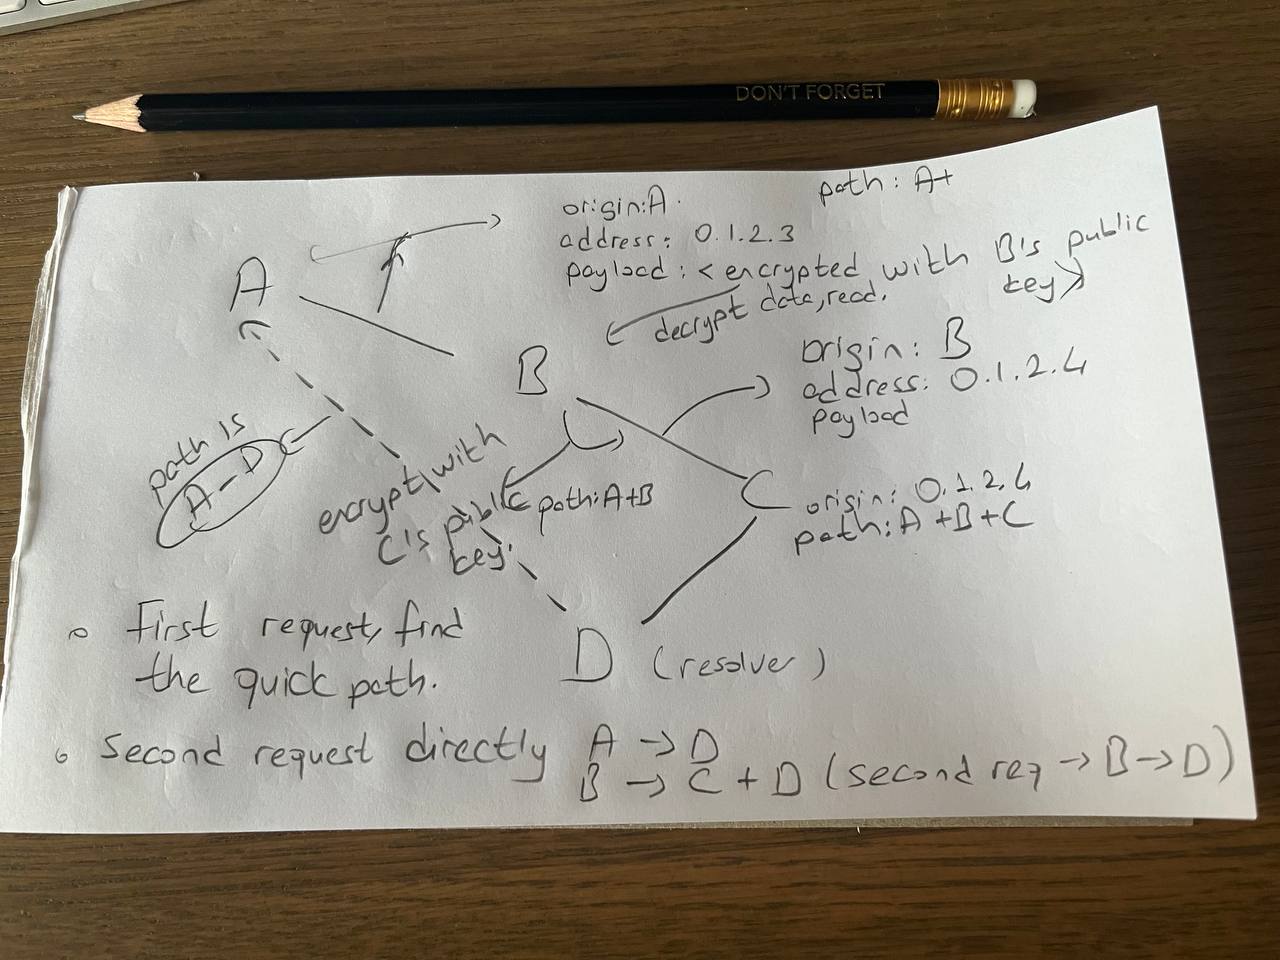 DON'T FORGET
path: A+
origin: A.
address: 0.1.2.3
payload: < encrypted with B's public
key>
decrypt data, read.
A
B
origin: B
address: 0.1.2.4
payload
path is
A-D
encrypt with
C's public
key.
path: A+B
C
origin: 0.1.2.4
path: A+B+C
D (resolver)
○ First request, find
the quick path.
○ Second request directly A → D
B → C + D (second req → B → D)